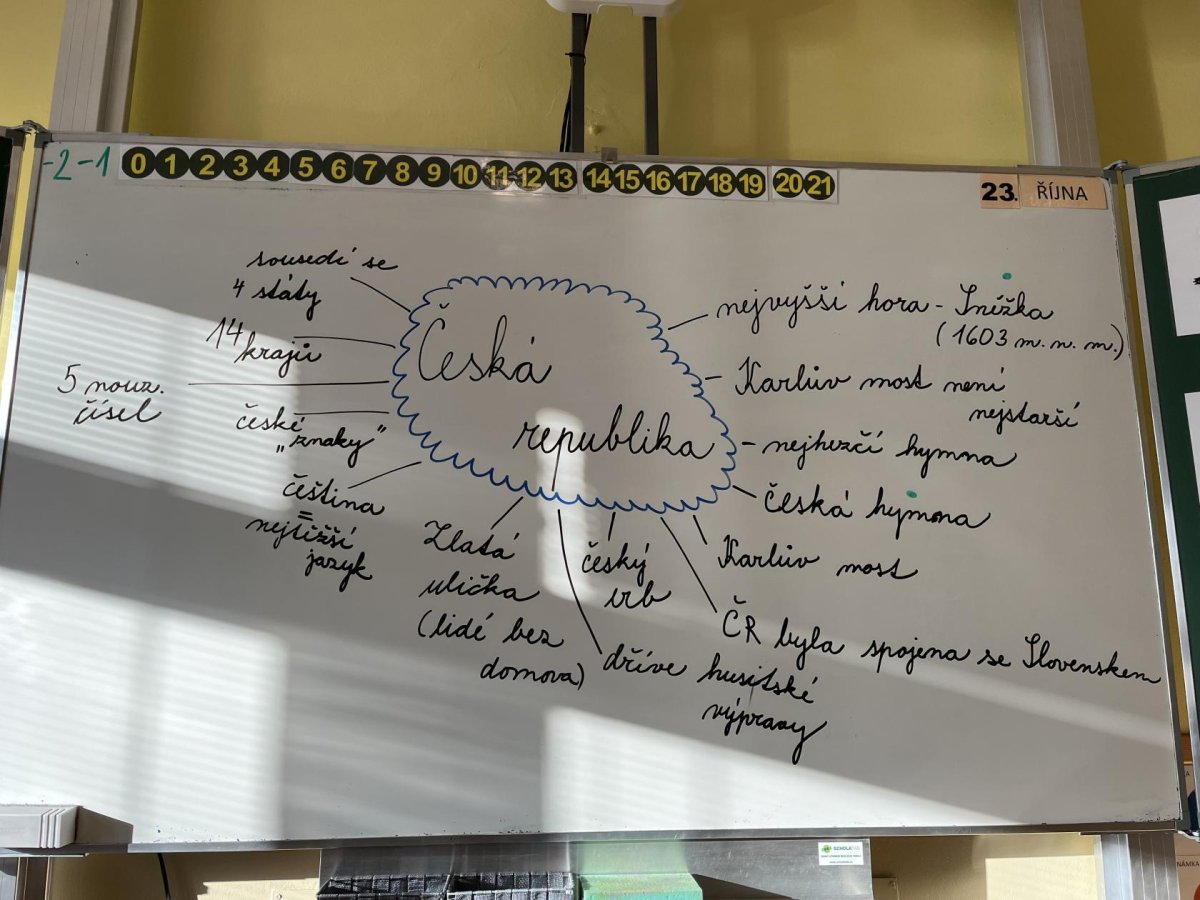 -2 -1 0 1 2 3 4 5 6 7 8 9 10 11 12 13 14 15 16 17 18 19 20 21
23. ŘÍJNA
sousedí se
4 státy
14
krajů
5 nouz.
čísel
české
„znaky”
čeština
=
nejtěžší
jazyk
Česká
republika
nejvyšší hora - Sněžka
(1603 m. n. m.)
Karlův most není
nejstarší
nejhezčí hymna
česká hymna
Karlův most
ČR byla spojena se Slovenskem
český
erb
dříve husitské
výpravy
Zlatá
ulička
(lidé bez
domova)